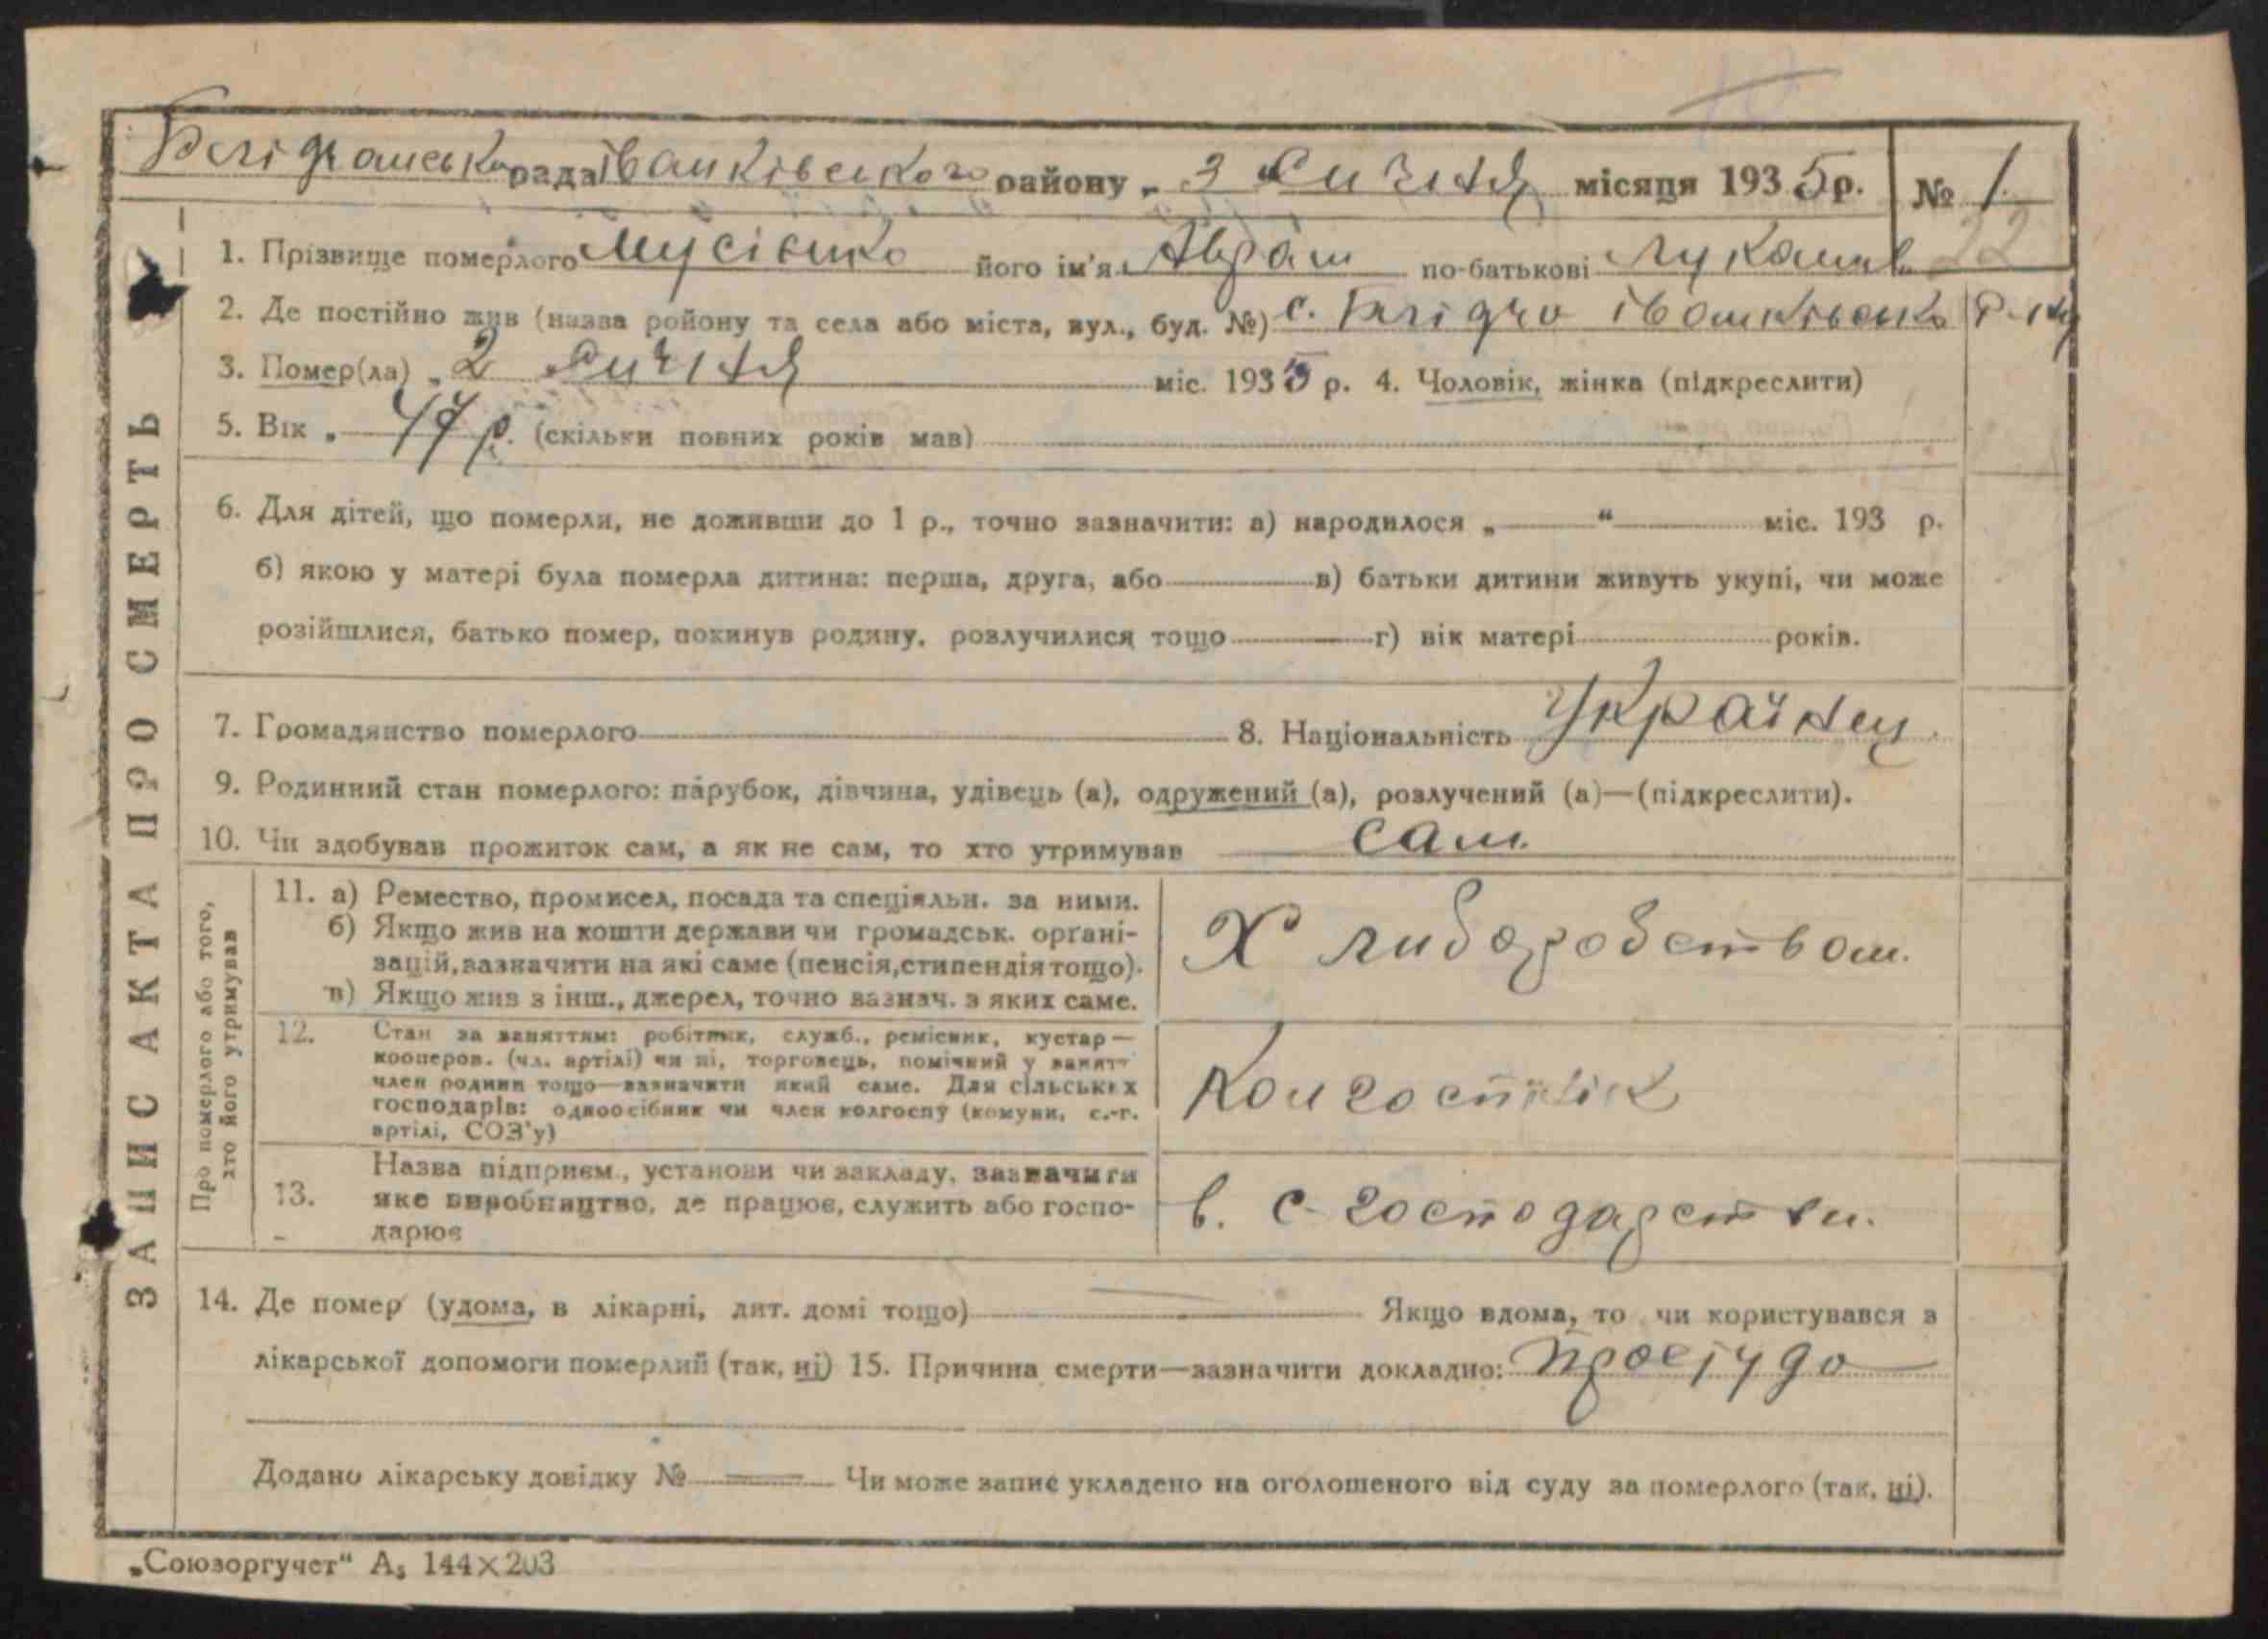 рада Іванківського району „ 3 Січня місяця 1935 р. № 1.
22
1. Прізвище померлого Мусієнко його ім'я Аврам по-батькові Лукашев.
2. Де постійно жив (назва ройону та села або міста, вул., буд. №) с. Іванківськ Р-ну
3. Помер(ла) „ 2 Січня міс. 1935 р. 4. Чоловік, жінка (підкреслити)
5. Вік „ 47 р. (скільки повних років мав)
6. Для дітей, що померли, не доживши до 1 р., точно зазначити: а) народилося „ “ міс. 193 р.
б) якою у матері була померла дитина: перша, друга, або в) батьки дитини живуть укупі, чи може
розійшлися, батько помер, покинув родину, розлучилися тощо г) вік матері років.
7. Громадянство померлого 8. Національність Українец.
9. Родинний стан померлого: парубок, дівчина, удівець (а), одружений (а), розлучений (а)—(підкреслити).
10. Чи здобував прожиток сам, а як не сам, то хто утримував сам.
ЗАПИС АКТА ПРО СМЕРТЬ
Про померлого або того,
хто його утримував
11. а) Ремество, промисел, посада та спеціяльн. за ними.
б) Якщо жив на кошти держави чи громадськ. орґані-
зацій, зазначити на які саме (пенсія, стипендія тощо).
в) Якщо жив з інш., джерел, точно зазнач. з яких саме.
Хлиборобством.
12. Стан за заняттям: робітник, служб., ремісник, кустар—
кооперов. (чл. артілі) чи ні, торговець, помічний у занятт
член родини тощо—зазначити який саме. Для сільських
господарів: одноосібник чи член колгоспу (комуни, с.-г.
артілі, СОЗ'у)
Колгоспнік
13. Назва підприєм., установи чи закладу, зазначити
яке виробництво, де працює, служить або госпо-
дарює
в. с-господарстви.
14. Де помер (удома, в лікарні, дит. домі тощо) Якщо вдома, то чи користувався з
лікарської допомоги померлий (так, ні) 15. Причина смерти—зазначити докладно: простудо
Додано лікарську довідку № Чи може запис укладено на оголошеного від суду за померлого (так, ні).
„Союзоргучет“ А₅ 144×203